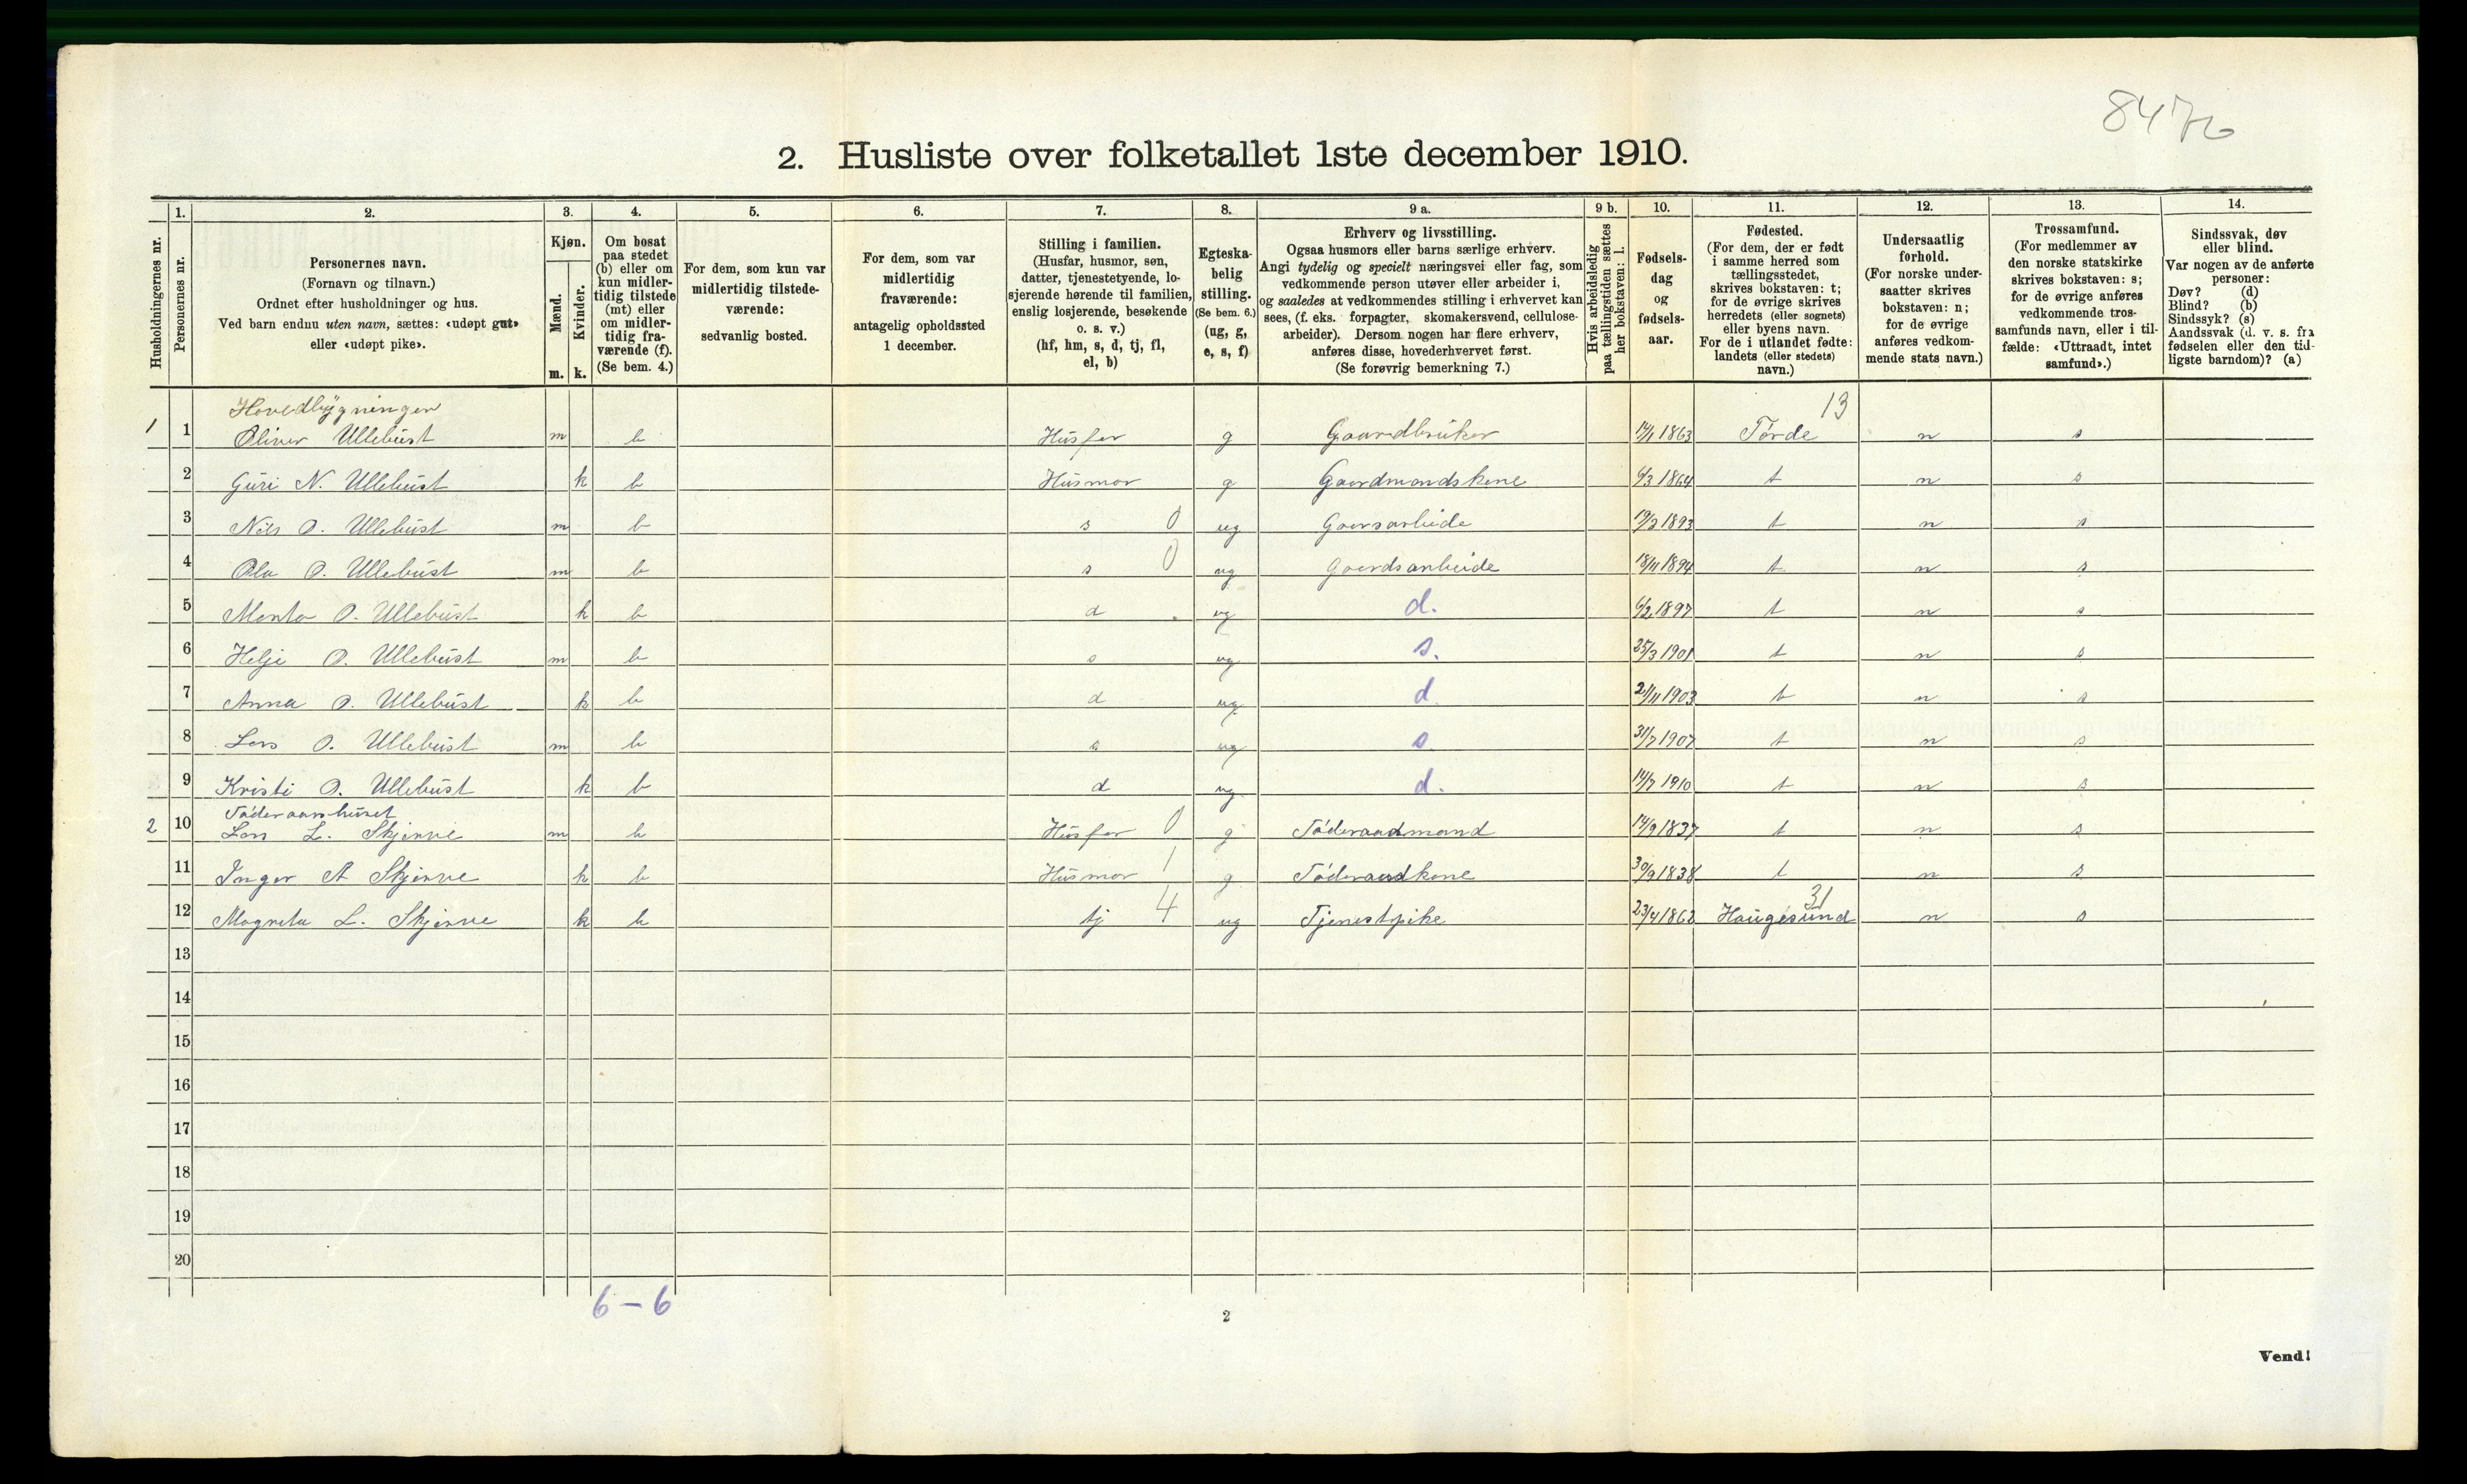 8470
2. Husliste over folketallet 1ste december 1910.
Husholdningernes nr.
1.
Personernes nr.
2.
Personernes navn.
(Fornavn og tilnavn.)
Ordnet efter husholdninger og hus.
Ved barn endnu uten navn, sættes: «udøpt gut»
eller «udøpt pike».
3.
Kjøn.
Mænd.
m.
Kvinder.
k.
4.
Om bosat
paa stedet
(b) eller om
kun midler-
tidig tilstede
(mt) eller
om midler-
tidig fra-
værende (f).
(Se bem. 4.)
5.
For dem, som kun var
midlertidig tilstede-
værende:
sedvanlig bosted.
6.
For dem, som var
midlertidig
fraværende:
antagelig opholdssted
1 december.
7.
Stilling i familien.
(Husfar, husmor, søn,
datter, tjenestetyende, lo-
sjerende hørende til familien,
enslig losjerende, besøkende
o. s. v.)
(hf, hm, s, d, tj, fl,
el, b)
8.
Egteska-
belig
stilling.
(Se bem. 6.)
(ug, g,
e, s, f)
9 a.
Erhverv og livsstilling.
Ogsaa husmors eller barns særlige erhverv.
Angi tydelig og specielt næringsvei eller fag, som
vedkommende person utøver eller arbeider i,
og saaledes at vedkommendes stilling i erhvervet kan
sees, (f. eks. forpagter, skomakersvend, cellulose-
arbeider). Dersom nogen har flere erhverv,
anføres disse, hovederhvervet først.
(Se forøvrig bemerkning 7.)
9 b.
Hvis arbeidsledig
paa tællingstiden sættes
her bokstaven: l.
10.
Fødsels-
dag
og
fødsels-
aar.
11.
Fødested.
(For dem, der er født
i samme herred som
tællingsstedet,
skrives bokstaven: t;
for de øvrige skrives
herredets (eller sognets)
eller byens navn.
For de i utlandet fødte:
landets (eller stedets)
navn.)
12.
Undersaatlig
forhold.
(For norske under-
saatter skrives
bokstaven: n;
for de øvrige
anføres vedkom-
mende stats navn.)
13.
Trossamfund.
(For medlemmer av
den norske statskirke
skrives bokstaven: s;
for de øvrige anføres
vedkommende tros-
samfunds navn, eller i til-
fælde: «Uttraadt, intet
samfund».)
14.
Sindssvak, døv
eller blind.
Var nogen av de anførte
personer:
Døv? (d)
Blind? (b)
Sindssyk? (s)
Aandssvak (d. v. s. fra
fødselen eller den tid-
ligste barndom)? (a)
Hovedbygningen 13
1 1 Oliver Ullebust m b Husfar g Gaardbruker 14/1 1863 Førde n s
2 Guri N. Ullebust k b Husmor g Gaardmandskone 6/3 1864 t n s
3 Nils O. Ullebust m b s 0 ug Gaarsarbeide 19/3 1893 t n s
4 Ola O. Ullebust m b s 0 ug Gaardsarbeide 18/11 1894 t n s
5 O. Ullebust k b d ug d. 6/2 1897 t n s
6 Helje O. Ullebust m b s ug s. 25/3 1901 t n s
7 Anna O. Ullebust k b d ug d. 21/11 1903 t n s
8 Lars O. Ullebust m b s ug s. 31/7 1907 t n s
9 Kristi O. Ullebust k b d ug d. 14/7 1910 t n s
2 10 Lars L. Skjerve m b Husfar 0 g Føderaadmand 14/9 1837 t n s
11 Inger A Skjerve k b Husmor 1 g Føderaadkone 30/9 1838 t n s
31
12 Magreta L. Skjerve k b tj 4 ug Tjenestpike 23/4 1862 Haugesund n s
13
14
15
16
17
18
19
20
6 – 6
2
Vend!